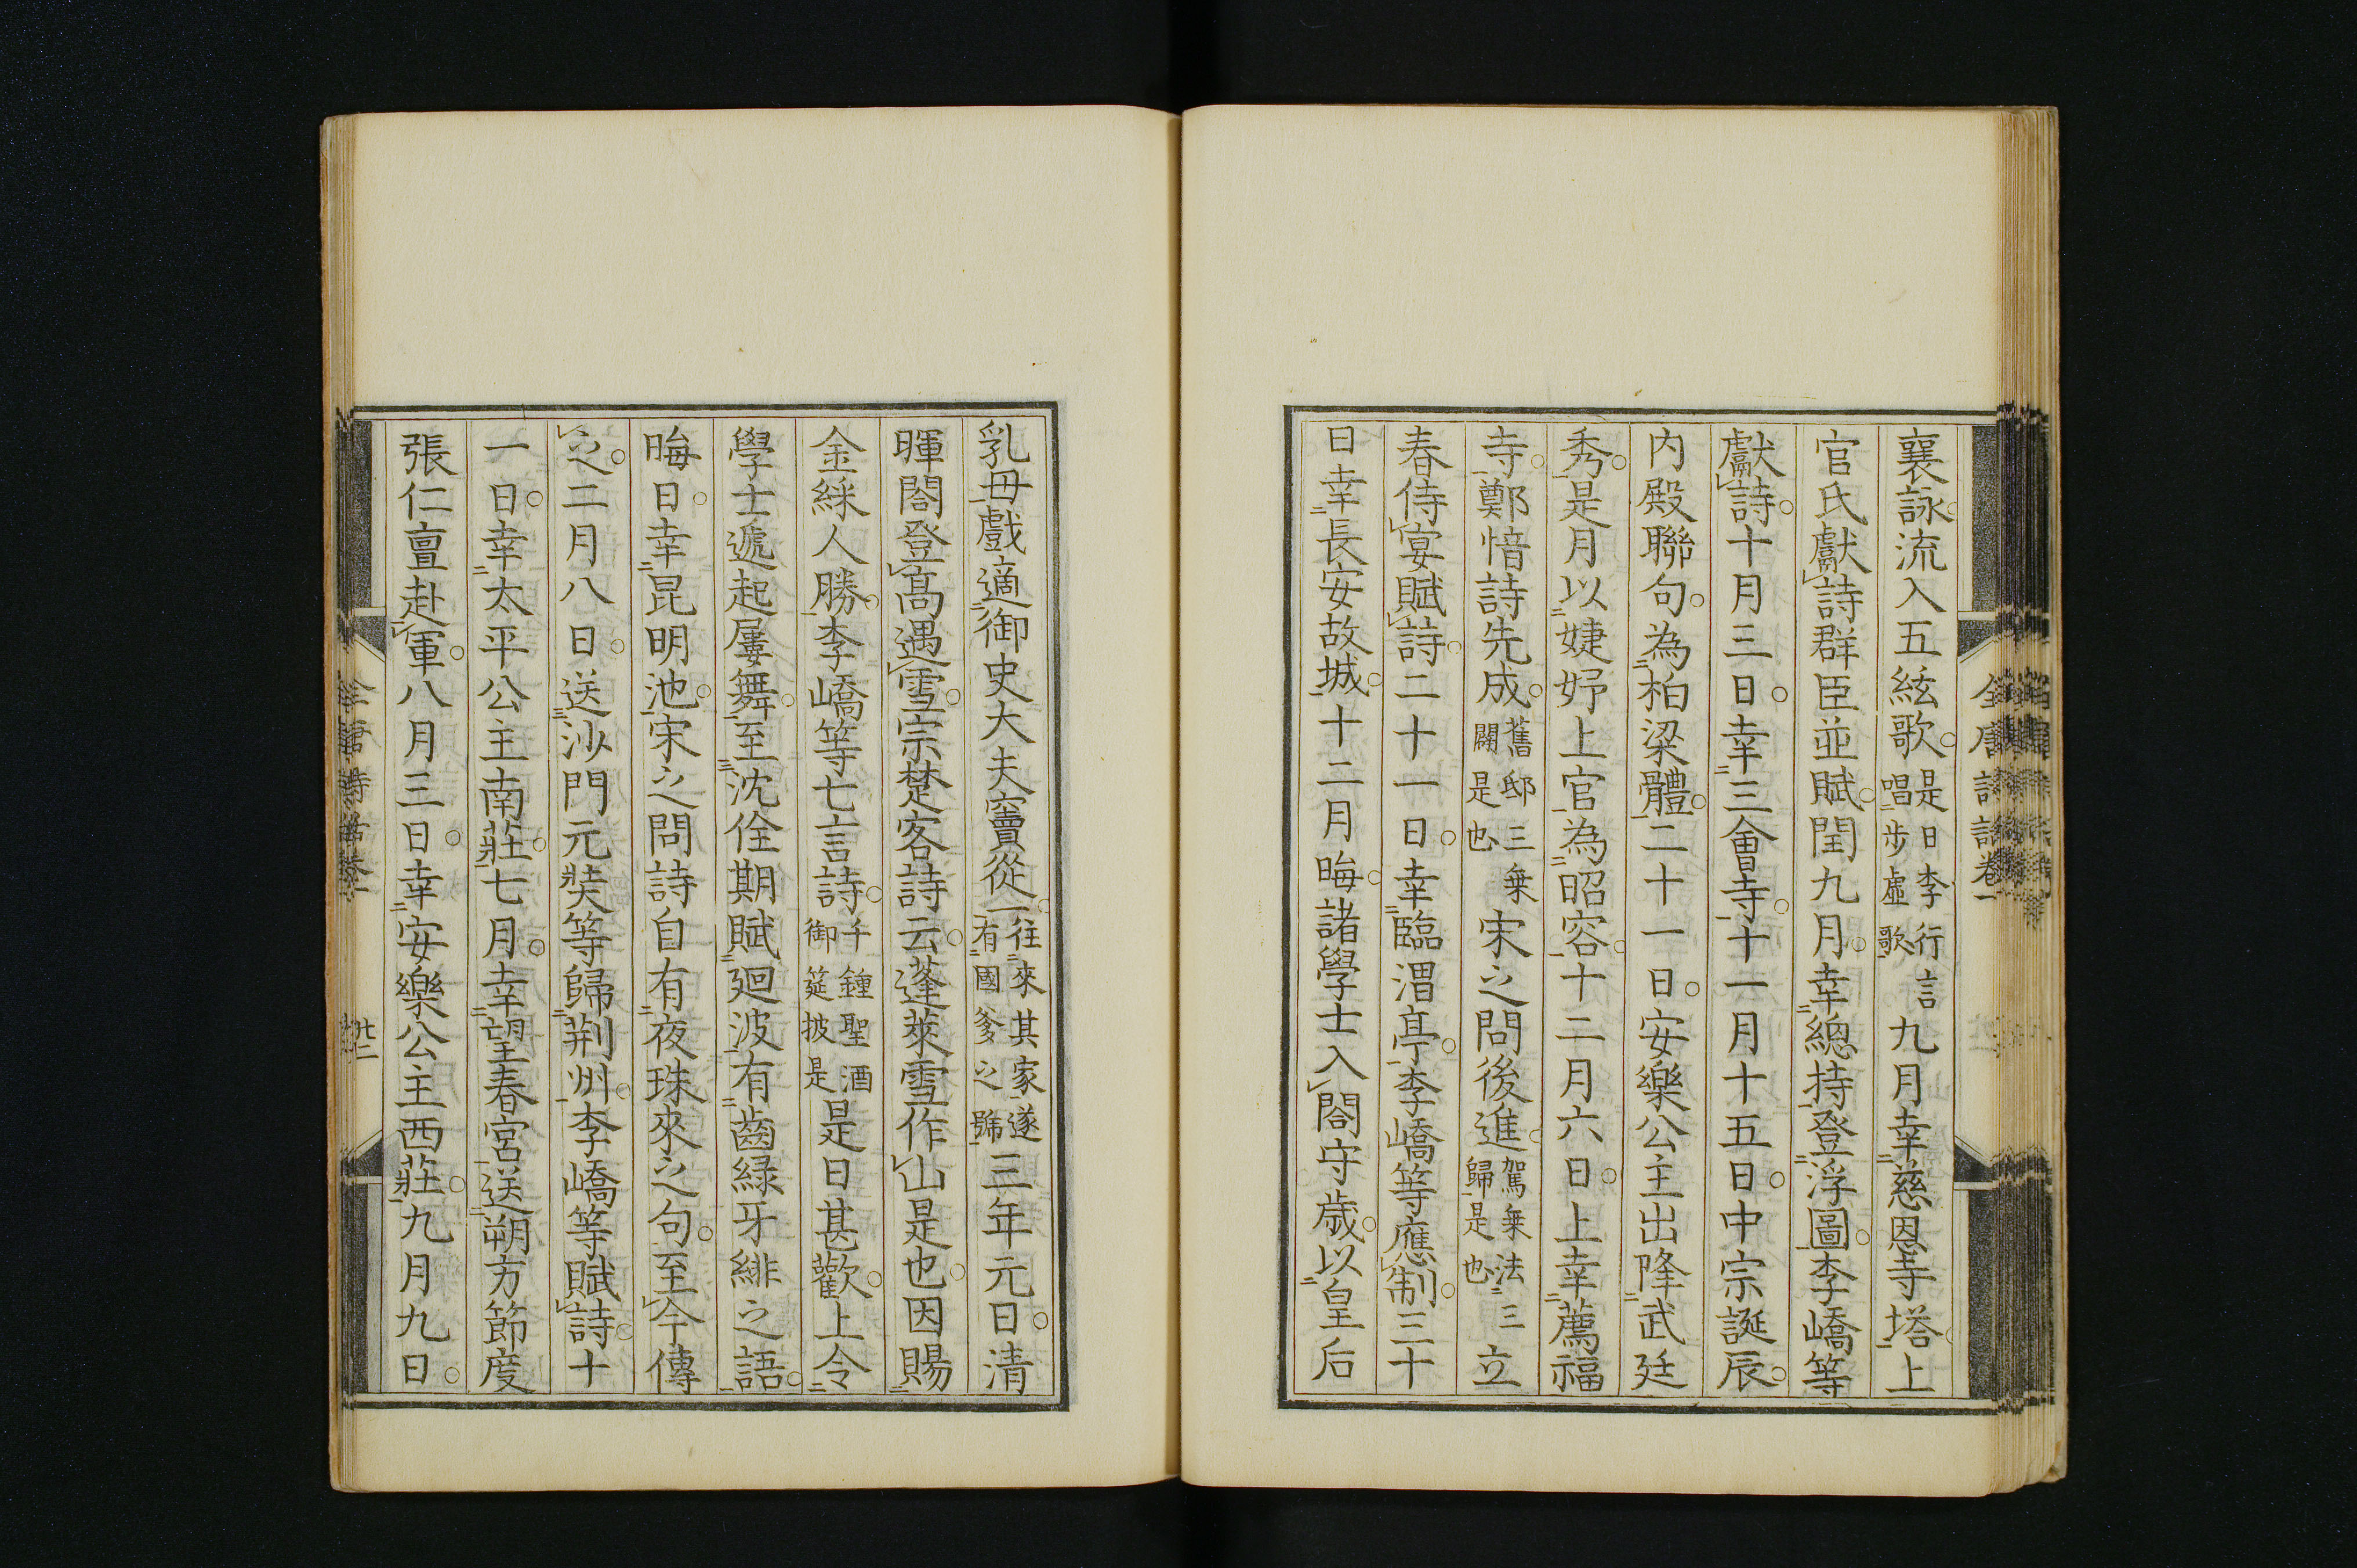 襄詠流入五絃歌是日李行言唱步虛歌九月幸慈恩寺塔上
官氏獻詩群臣並賦閏九月幸總持登浮圖李嶠等
獻詩十月三日幸三會寺十一月十五日中宗誕辰
内殿聯句為柏梁體二十一日安樂公主出降武廷
秀是月以婕妤上官為昭容十二月六日上幸薦福
寺鄭愔詩先成舊邸三乗闢是也宋之問後進駕乗法三歸是也立
春侍宴賦詩二十一日幸臨渭亭李嶠等應制三十
日幸長安故城十二月晦諸學士入閤守歳以皇后
全唐詩話卷一
乳母戲適御史大夫竇從一往來其家遂有國爹之號三年元日清
暉閤登髙遇雪宗楚客詩云蓬萊雪作山是也因賜
金綵人勝李嶠等七言詩千鍾聖酒御筵披是是日甚歡上令
學士遞起屢舞至沈佺期賦廻波有齒緑牙緋之語
晦日幸昆明池宋之問詩自有夜珠來之句至今傳
之二月八日送沙門元奘等歸荆州李嶠等賦詩十
一日幸太平公主南莊七月幸望春宮送朔方節度
張仁亶赴軍八月三日幸安樂公主西莊九月九日